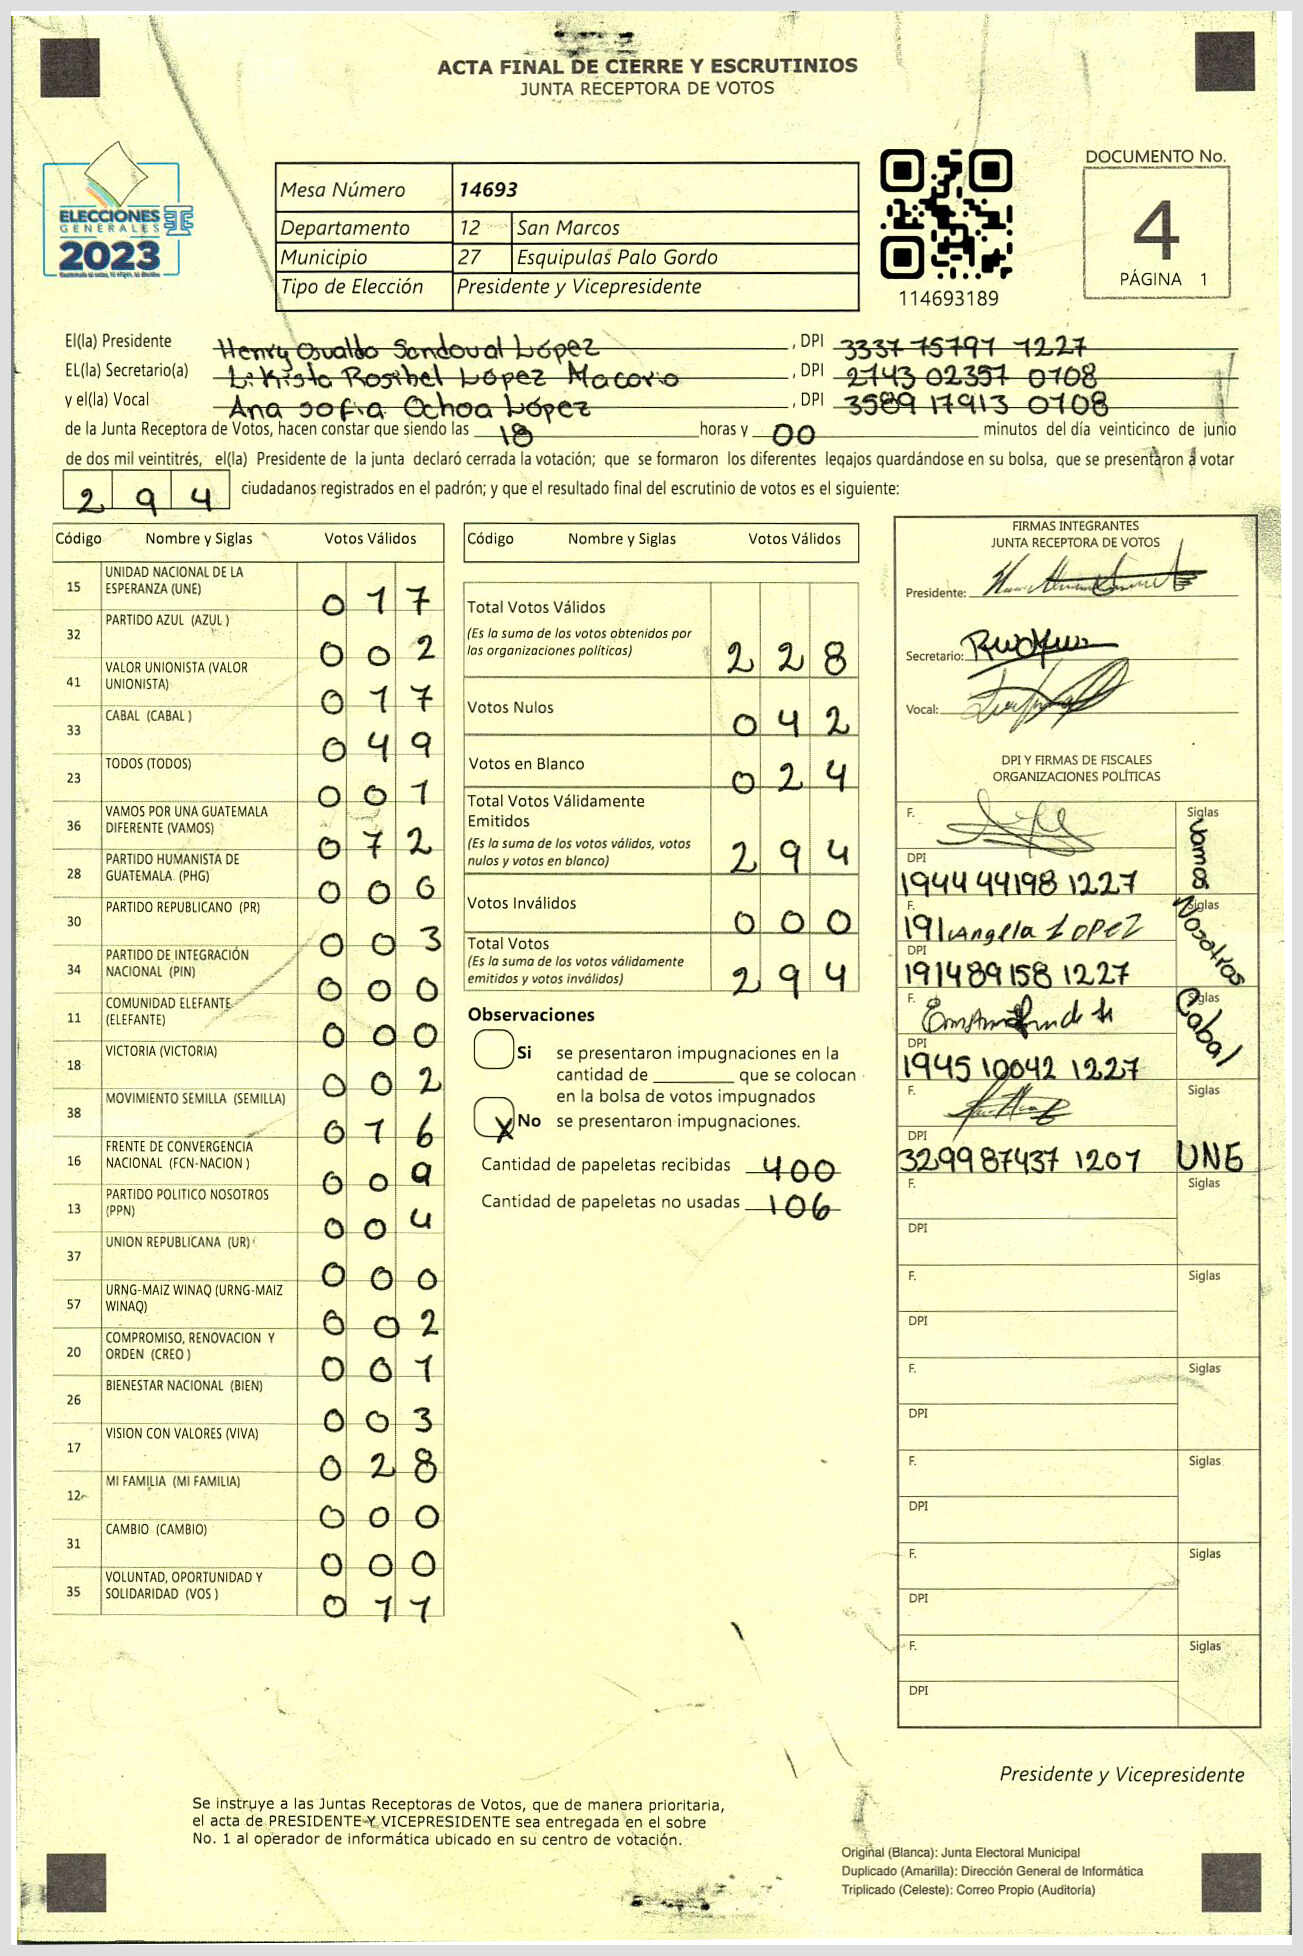 ACTA FINAL DE CIERRE Y ESCRUTINIOS
JUNTA RECEPTORA DE VOTOS
ELECCIONES
GENERALES
2023
Mesa Número 14693
Departamento 12 San Marcos
Municipio 27 Esquipulas Palo Gordo
Tipo de Elección Presidente y Vicepresidente
114693189
DOCUMENTO No.
4
PÁGINA 1
El(la) Presidente Henry Osualdo Sandoval López, DPI 3337 75797 1227
EL(la) Secretario(a) Rosibel López, DPI 2743 02357 0708
y el(la) Vocal Ana Sofia Ochoa López, DPI 3589 17913 0708
de la Junta Receptora de Votos, hacen constar que siendo las 18 horas y 00 minutos del día veinticinco de junio
de dos mil veintitrés, el(la) Presidente de la junta declaró cerrada la votación; que se formaron los diferentes legajos guardándose en su bolsa, que se presentaron a votar
294 ciudadanos registrados en el padrón; y que el resultado final del escrutinio de votos es el siguiente:
Código Nombre y Siglas Votos Válidos
15 UNIDAD NACIONAL DE LA ESPERANZA (UNE) 017
32 PARTIDO AZUL (AZUL ) 002
41 VALOR UNIONISTA (VALOR UNIONISTA) 017
33 CABAL (CABAL ) 049
23 TODOS (TODOS) 001
36 VAMOS POR UNA GUATEMALA DIFERENTE (VAMOS) 072
28 PARTIDO HUMANISTA DE GUATEMALA (PHG)
30 PARTIDO REPUBLICANO (PR) 003
34 PARTIDO DE INTEGRACIÓN NACIONAL (PIN) 000
11 COMUNIDAD ELEFANTE (ELEFANTE) 000
18 VICTORIA (VICTORIA) 002
38 MOVIMIENTO SEMILLA (SEMILLA) 016
16 FRENTE DE CONVERGENCIA NACIONAL (FCN-NACION ) 009
13 PARTIDO POLITICO NOSOTROS (PPN) 004
37 UNION REPUBLICANA (UR) 000
57 URNG-MAIZ WINAQ (URNG-MAIZ WINAQ) 002
20 COMPROMISO, RENOVACION Y ORDEN (CREO ) 001
26 BIENESTAR NACIONAL (BIEN) 003
17 VISION CON VALORES (VIVA) 028
12 MI FAMILIA (MI FAMILIA) 000
31 CAMBIO (CAMBIO) 000
35 VOLUNTAD, OPORTUNIDAD Y SOLIDARIDAD (VOS ) 011
Código Nombre y Siglas Votos Válidos
Total Votos Válidos 228
(Es la suma de los votos obtenidos por
las organizaciones políticas)
Votos Nulos 042
Votos en Blanco 024
Total Votos Válidamente
Emitidos 294
(Es la suma de los votos válidos, votos
nulos y votos en blanco)
Votos Inválidos 000
Total Votos 294
(Es la suma de los votos válidamente
emitidos y votos inválidos)
Observaciones
Si se presentaron impugnaciones en la
cantidad de ________ que se colocan
en la bolsa de votos impugnados
X No se presentaron impugnaciones.
Cantidad de papeletas recibidas 400
Cantidad de papeletas no usadas 106
FIRMAS INTEGRANTES
JUNTA RECEPTORA DE VOTOS
Presidente:
Secretario:
Vocal:
DPI Y FIRMAS DE FISCALES
ORGANIZACIONES POLÍTICAS
F. Siglas Vamos
DPI
1944 44198 1227
F. 191 Angela LOPEZ Siglas Nosotros
DPI
191489158 1227
F. Siglas Cabal
DPI
1945 10042 1227
F. Siglas UNE
DPI
3299 87437 1201
F. Siglas
DPI
F. Siglas
DPI
F. Siglas
DPI
F. Siglas
DPI
F. Siglas
DPI
F. Siglas
DPI
Presidente y Vicepresidente
Se instruye a las Juntas Receptoras de Votos, que de manera prioritaria,
el acta de PRESIDENTE Y VICEPRESIDENTE sea entregada en el sobre
No. 1 al operador de informática ubicado en su centro de votación.
Original (Blanca): Junta Electoral Municipal
Duplicado (Amarilla): Dirección General de Informática
Triplicado (Celeste): Correo Propio (Auditoría)